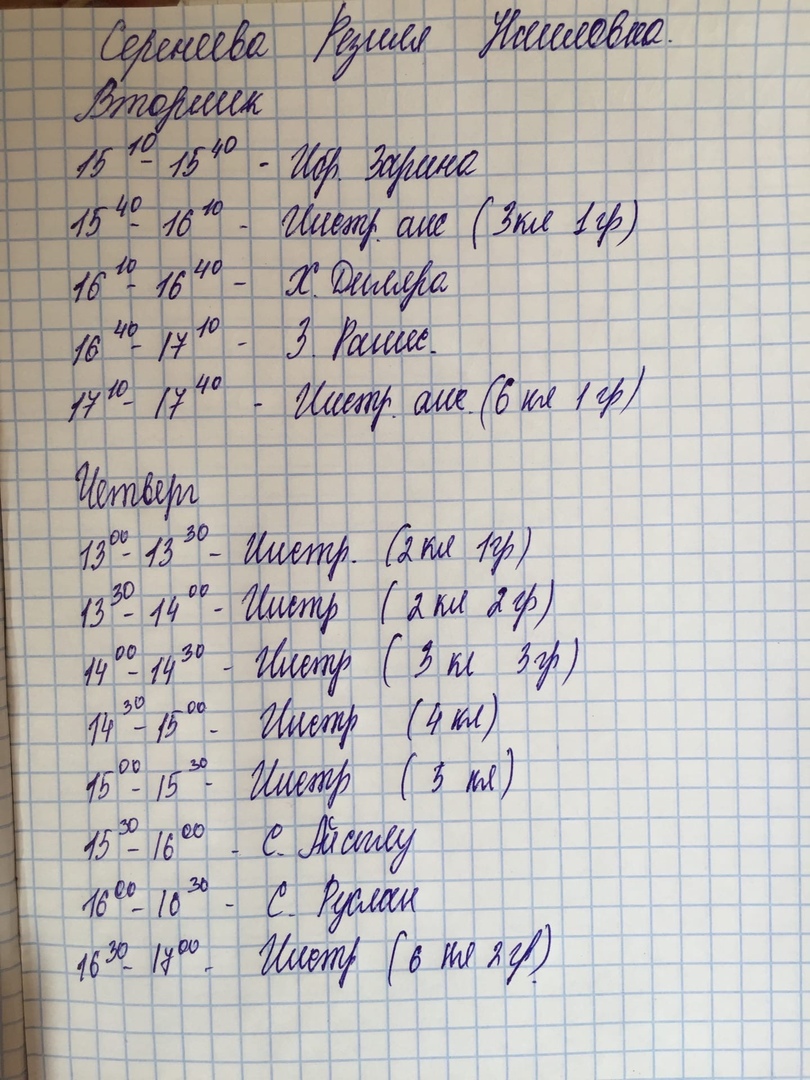 Вторник
15 10 - 15 40 - Ибр. Зарина
15 40 - 16 10 - Инстр. анс (3кл 1гр)
16 10 - 16 40 - Х. Диляра
16 40 - 17 10 - З.
17 10 - 17 40 - Инстр. анс. (6 кл 1 гр)
Четверг
13 00 - 13 30 - Инстр. (2 кл 1гр)
13 30 - 14 00 - Инстр (2 кл 2 гр)
14 00 - 14 30 - Инстр (3 кл 3гр)
14 30 - 15 00 - Инстр (4 кл)
15 00 - 15 30 - Инстр (кл)
15 30 - 16 00 - С. Айсылу
16 00 - 30 - С. Руслан
16 30 - 17 00 - Инстр (6 кл 2 гр)